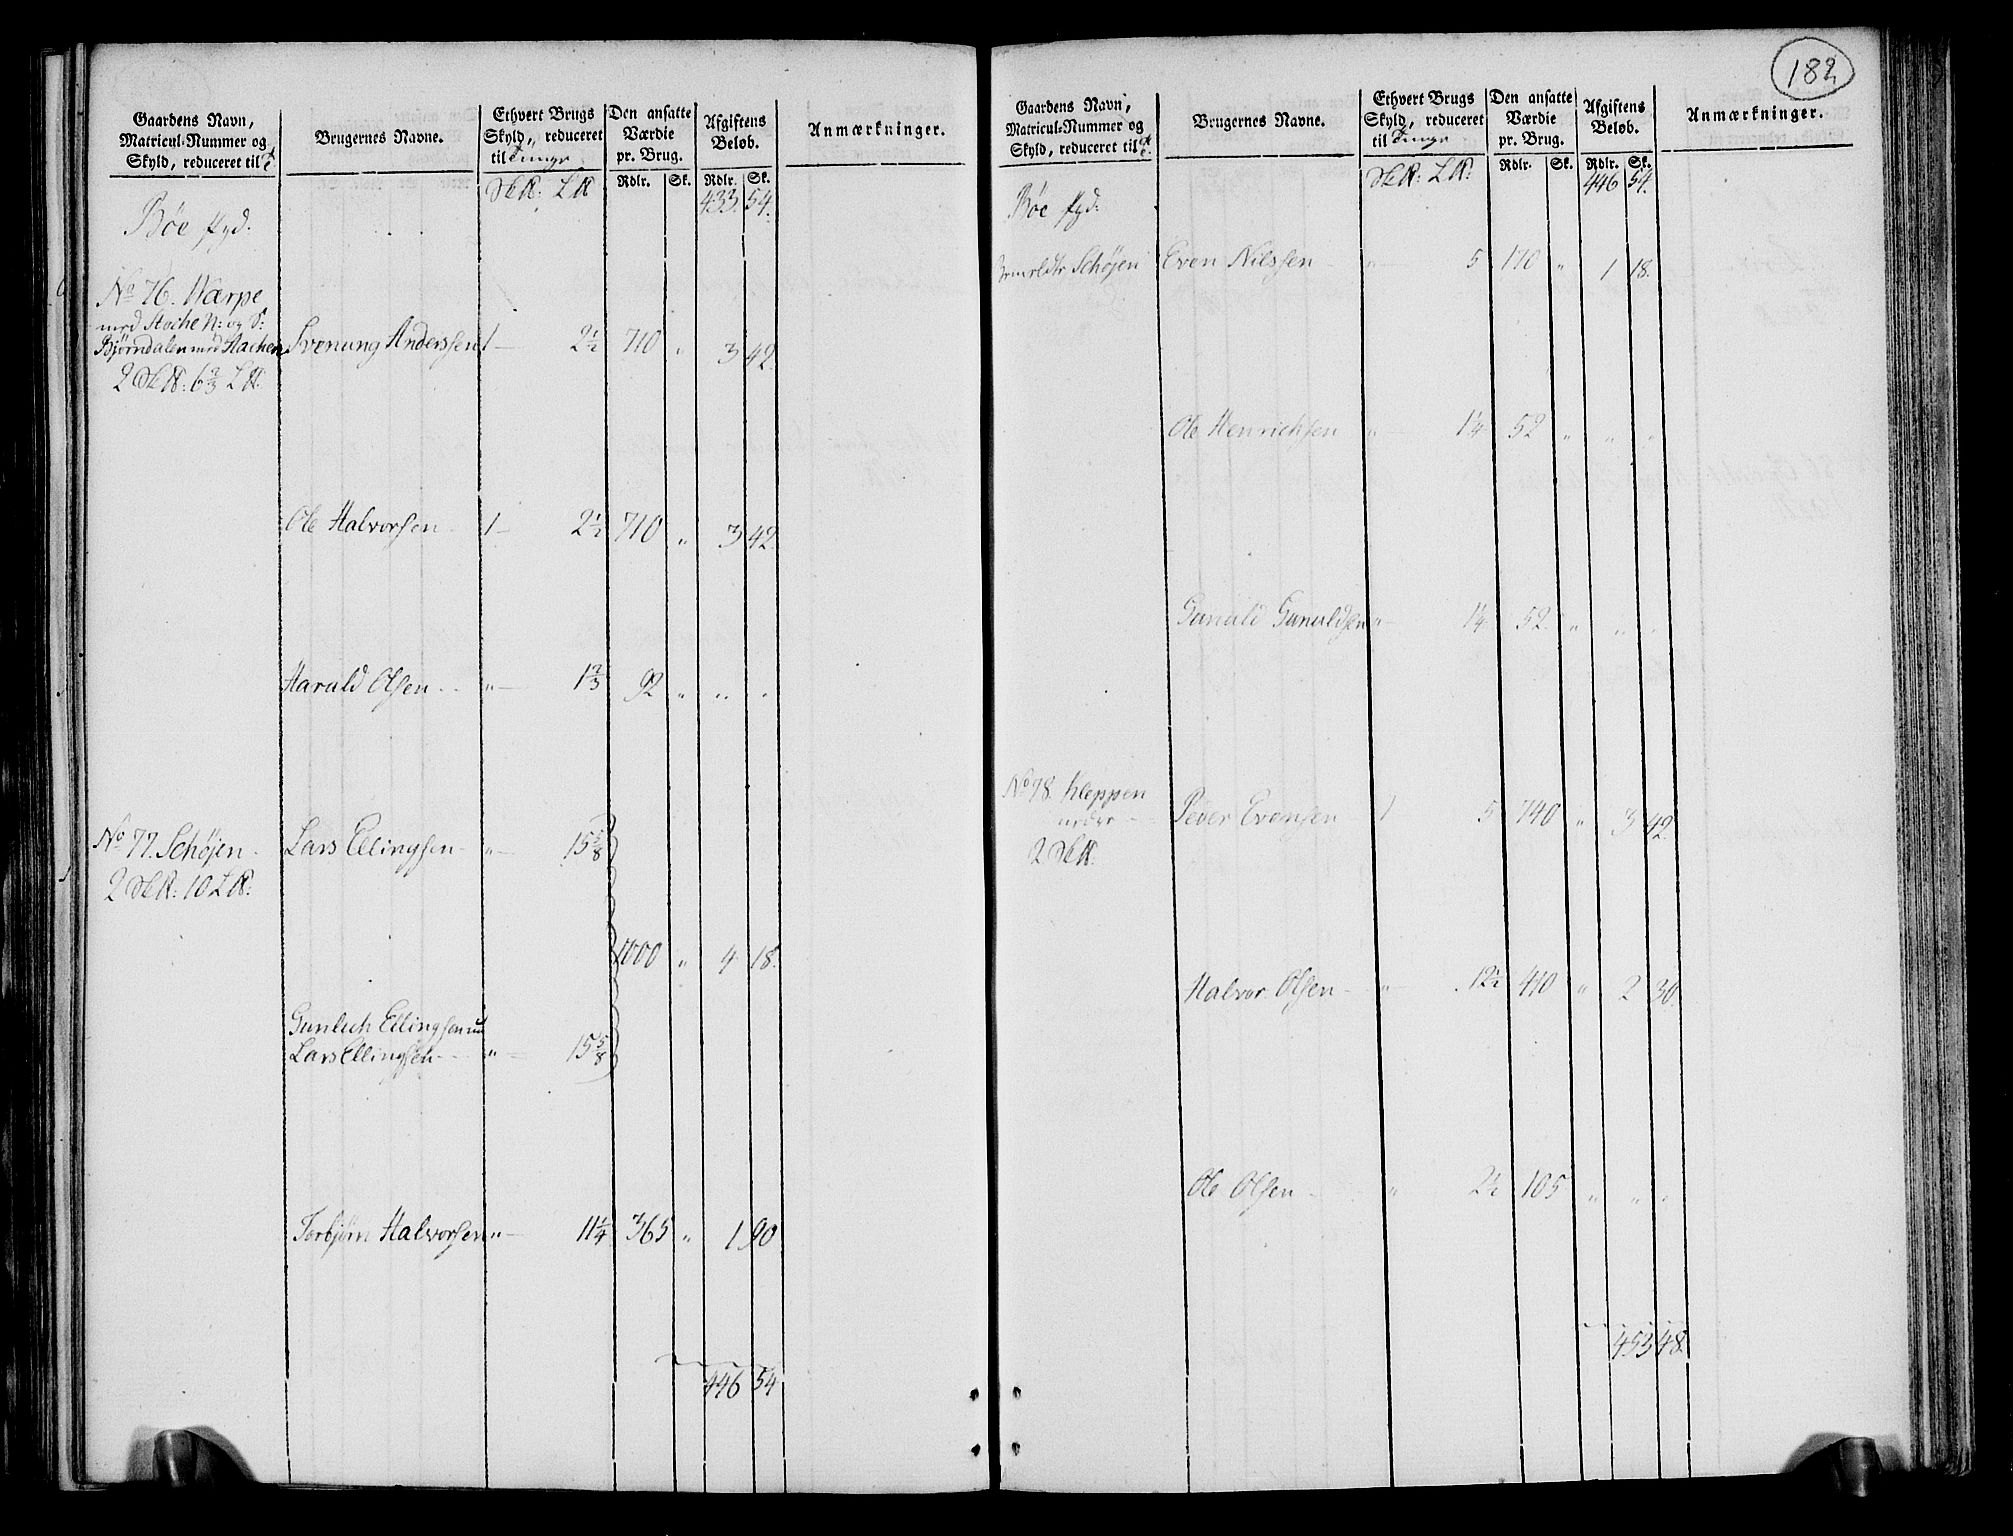 182
Gaardens Navn, Matricul-Nummer og Skyld, reduceret til
Brugernes Navne.
Ethvert Brugs Skyld, reduceret til Tunge
Den ansatte Værdie pr. Brug.
Afgiftens Beløb.
Anmærkninger.
Rdlr. Sk. Rdlr. Sk.
433. 54.
Bøe
No 76. Wærpe
med Stoche N: og S:
Bjørndalen med Hachen Svenung Anderssen 1 - 2½ 710 " 3 42.
2 6⅔
Ole Halvorsen 1 - 2½ 710 " 3 42.
Harald Olsen - " - 1⅔ 92 " " "
No 77. Schøjen - Lars Ellingsen - " - 15⅝
2 10
1000 " 4 18.
Gunlech Ellingsen
Lars Ellingsen - " - 15⅝
Torbjørn Halvorsen " - 11¼ 365 " 1 90
446 54
Gaardens Navn, Matricul-Nummer og Skyld, reduceret til
Brugernes Navne.
Ethvert Brugs Skyld, reduceret til Tunge
Den ansatte Værdie pr. Brug.
Afgiftens Beløb.
Anmærkninger.
Rdlr. Sk. Rdlr. Sk.
446 54.
Bøe
Schøjen Even Nilssen - " - 5 170 " 1 18.
Ole Henrichsen " - 1¼ 52 " " "
Gunuld Gunuldsen " - 1¼ 52 " " "
No 78. Kleppen
nedre - Peder Evensen - 1 5 740 " 3 42
2
Halvor Olsen - " - 12½ 440 " 2 30.
Ole Olsen - " 2½ 105 " " "
453 48.